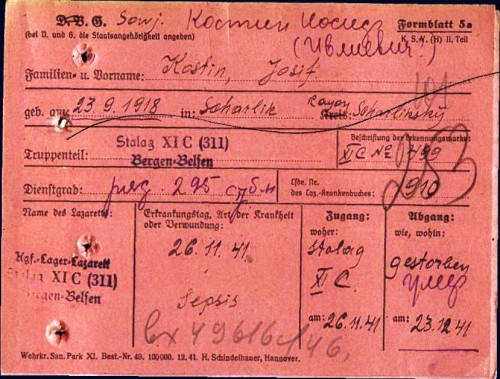 D.B.G. Sowj. Костин Иосиф Formblatt 5a
(bei D. und G. die Staatsangehörigkeit angeben) K. S. V. (H) II. Teil
Familien- u. Vorname: Kostin, Josif
geb. am: 23.9.1918 in: Scharlik Rayon Kreis: Scharlinsky
Stalag XI C (311)
Bergen-Belsen
Truppenteil:
Beschriftung der Erkennungsmarke
XI C No
Dienstgrad: 295
Lfde. Nr. des Laz.-Krankenbuches: 910
Name des Lazaretts:
Kgf.-Lager-Lazarett
Stalag XI C (311)
Bergen-Belsen
Erkrankungstag, Art der Krankheit
oder Verwundung:
26.11.41
Sepsis
Zugang:
woher:
Stalag
XI C.
am: 26.11.41
Abgang:
wie, wohin:
gestorben
умер
am: 23.12.41
Wehrkr. San. Park XI. Best.-Nr. 49. 100000. 12. 41. H. Schindelhauer, Hannover.